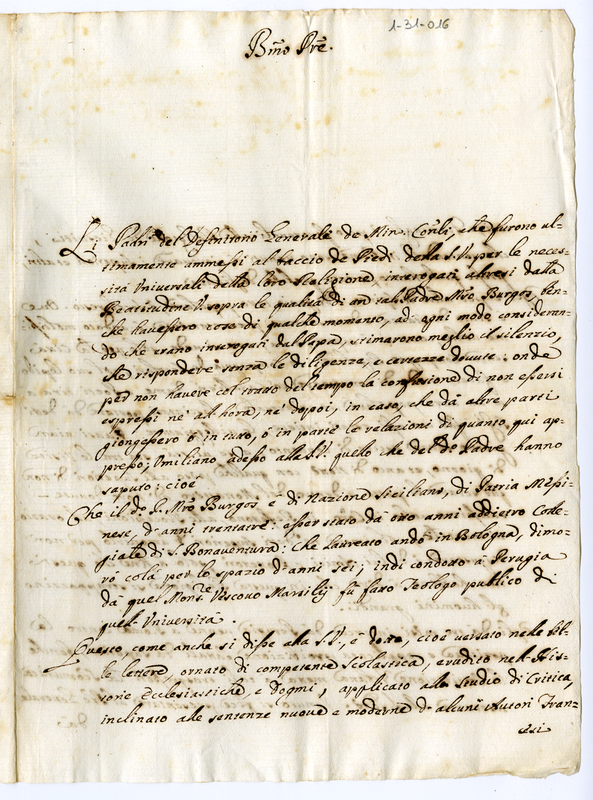 1-31-016
Bm̃o Prẽ.
Li Padri del Definitorio Generale de Min: Conli, che furono ul-
timamente ammessi al baccio de Piedi della S.V. per le neces-
sità Universali della loro Religione, interrogati altresi dalla
Beatitudine V. sopra le qualità di un tal Padre Mro Burgos, ben-
che havessero cose di qualche momento, ad ogni modo consideran-
do che erano interogati dal Papa, stimarono meglio il silenzio,
che rispondere senza le diligenze, e certezze dovute: onde
per non havere col tratto del tempo la confusione di non essersi
espressi nè all'hora, nè dopoi, in caso, che dà altre parti
giongessero ò in tuto, ò in parte le relazioni di quanto qui ap-
presso; Umiliano adesso alla S.V. quello che del do Padre hanno
saputo: cioè
Che il do P. Mro Burgos è di Nazione Siciliano, di Patria Messi-
nese, d'anni trentatre: esser stato dà otto anni addietro Colle-
giale di S. Bonaventura: che laureato andò in Bologna, dimo-
rò colà per lo spazio d'anni sei; indi condotto à Perugia
dà quel Monsre Vescovo Marsilij fù fatto Teologo publico di
quell'Università.
Questo, come anche si disse alla S.V., è dotto, cioè versato nelle bel-
le lettere, ornato di competente Scolastica, erudito nell'His-
torie Ecclesiastiche, e Dogmi, applicato allo studio di Critica,
inclinato alle sentenze nuove e moderne d'alcuni Autori Fran-
cesi